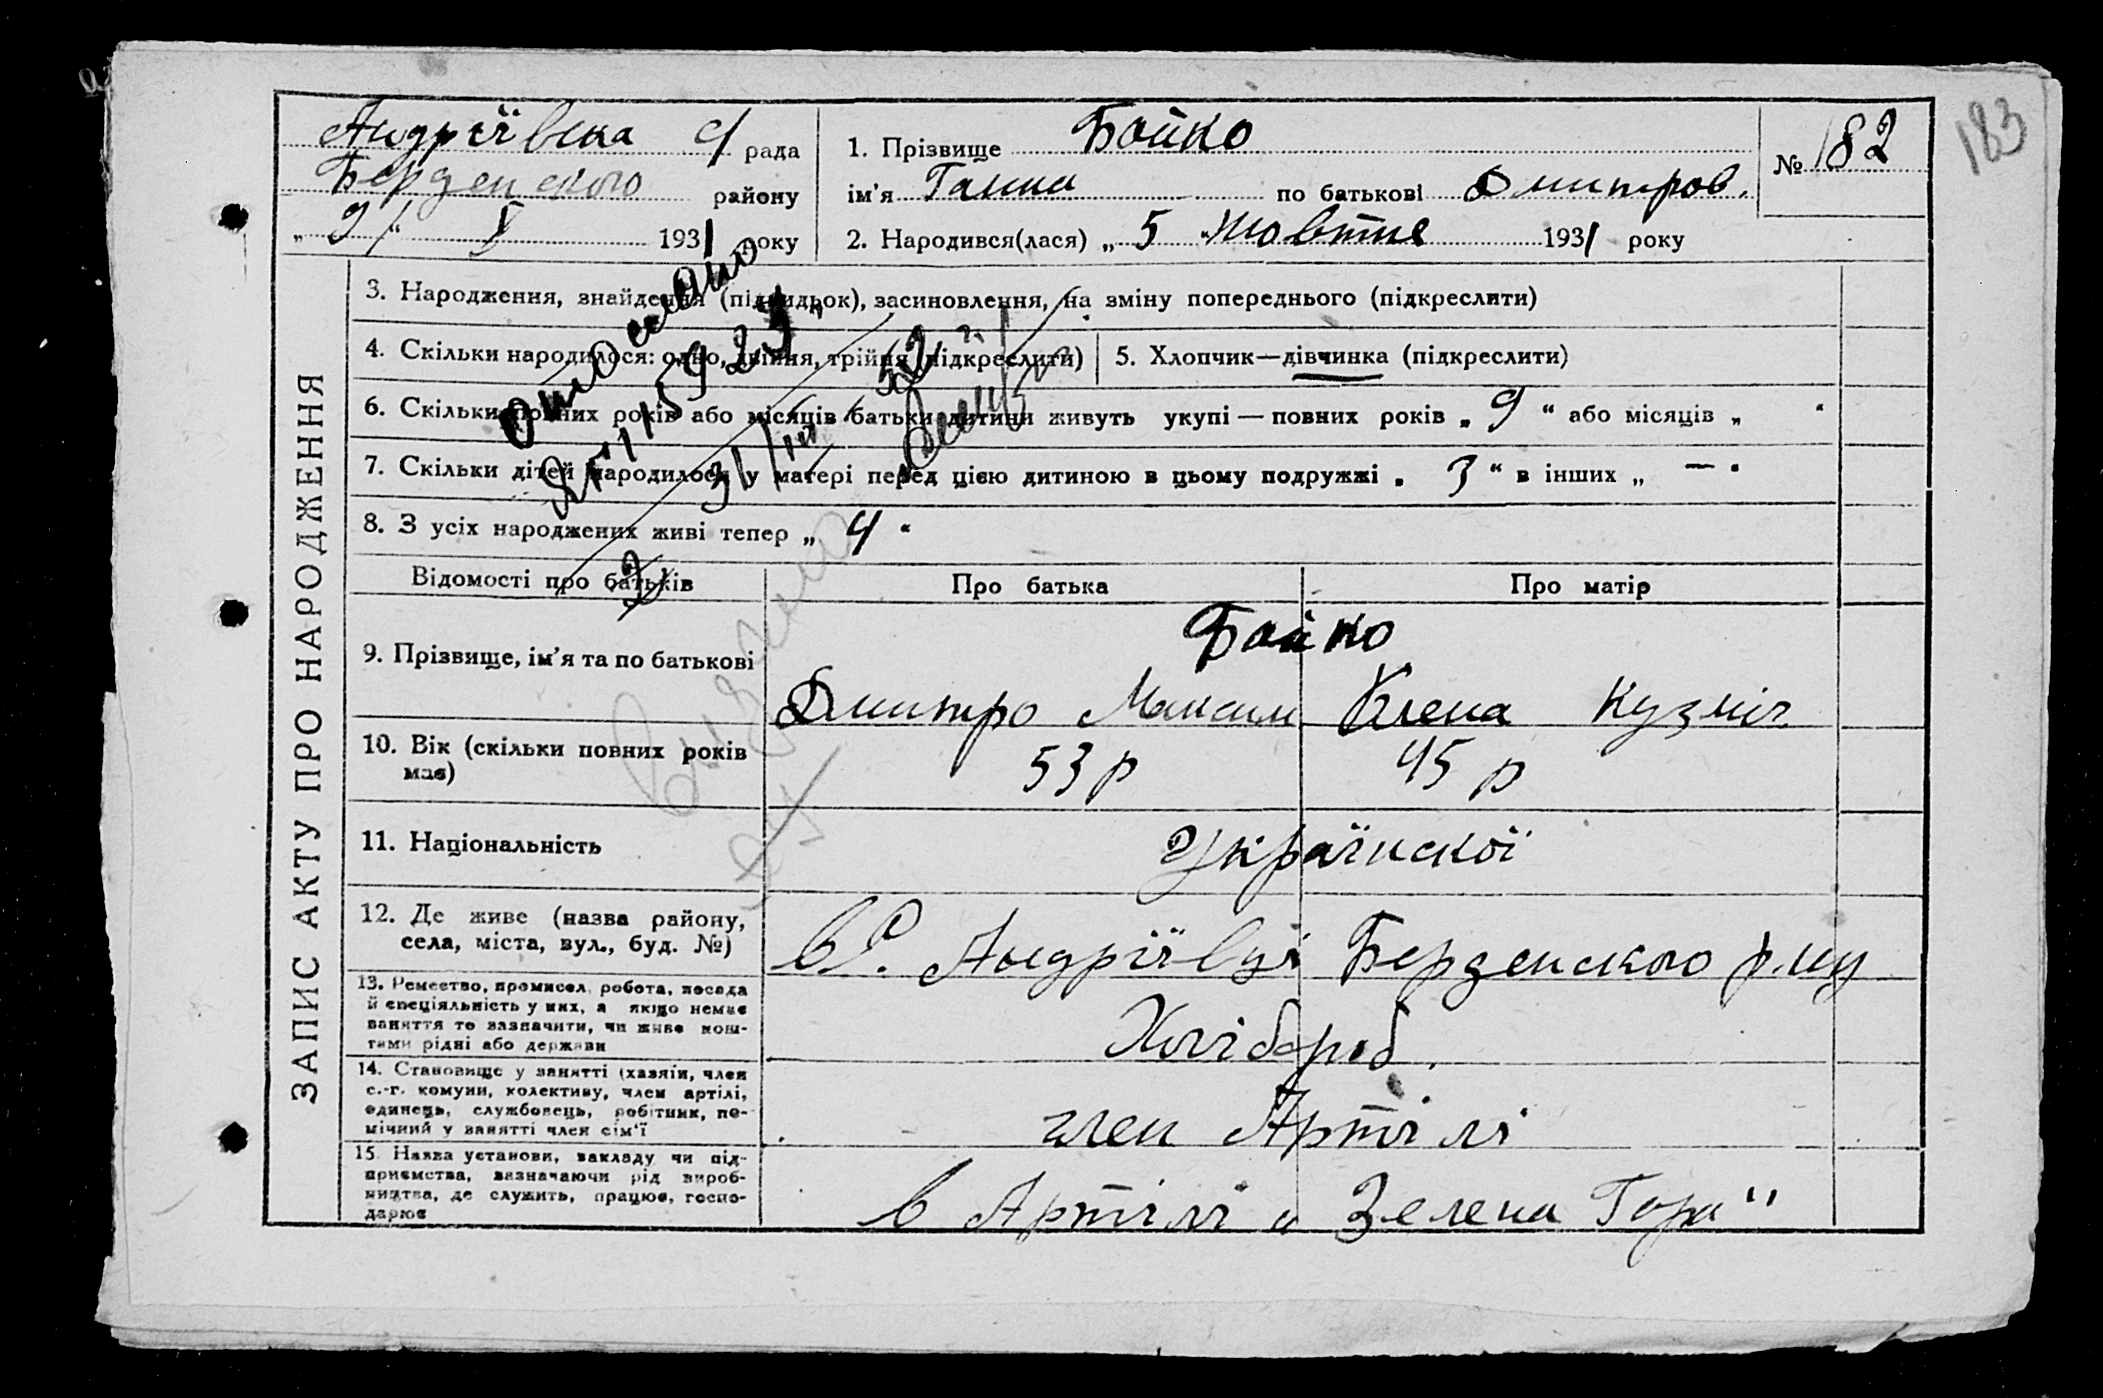 Андріївска с/ рада
Берденского району
„ 9/ “ X 1931 року
1. Прізвище Бойко
ім'я Ганна по батькові Дмитров.
2. Народився(лася) „ 5 “ Жовтне 1931 року
№ 182
183
ЗАПИС АКТУ ПРО НАРОДЖЕННЯ
3. Народження, знайдення (підкидьок), засиновлення, на зміну попереднього (підкреслити)
4. Скільки народилося: одно, двійня, трійня (підкреслити)
5. Хлопчик—дівчинка (підкреслити)
6. Скільки повних років або місяців батьки дитини живуть укупі — повних років „ 9 “ або місяців „ “
7. Скільки дітей народилося у матері перед цією дитиною в цьому подружжі „ 3 “ в інших „ — “
8. З усіх народжених живі тепер „ 4 “
Отослано
31/III 52 г.
Відомості про батьків
Про батька
Про матір
9. Прізвище, ім'я та по батькові
Бойко
Дмитро Максим
Олена Кузміч
10. Вік (скільки повних років має)
53 р
45 р
11. Національність
Українскої
12. Де живе (назва району, села, міста, вул., буд. №)
в С. Андріївці Берденского р-ну
13. Ремество, промисел, робота, посада й спеціяльність у них, а якщо немає заняття то зазначити, чи живе коштами рідні або держави
Хлібороб.
14. Становище у занятті (хазяїн, член с.-г. комуни, колективу, член артілі, одинець, службовець, робітник, помічний у занятті член сім'ї
член Артілі
15. Назва установи, закладу чи підприємства, зазначаючи рід виробництва, де служить, працює, господарює
в Артілі „ Зелена Гора"